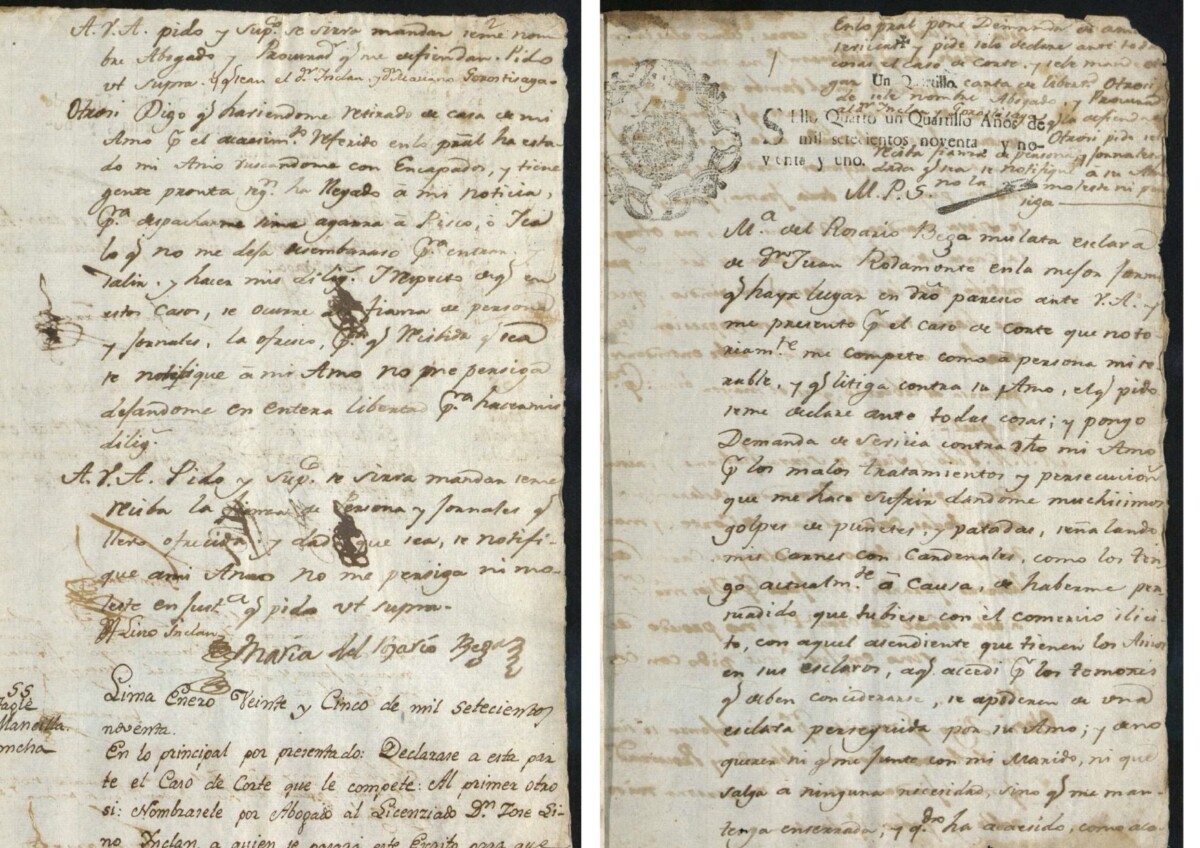 A. V. A. pido y sup.co se sirva mandar seme nom-
bre Abogado y Procurad.r q.e me defiendan. Pido
vt supra. q.e sean el d.r Inclan, y d.n Mariano Gorostisaga-
Otrosi Digo q.e haviendome retirado de casa de mi
Amo p.r el acaesim.to referido en lo pral ha esta-
do mi Amo buscandome con Encapados, y tiene
gente pronta seg.n ha llegado à mi noticia,
p.a despacharme una agarra â Pisco, ò Ica
lo q.e no me deja desembaraso p.a enten-
talar. y hacer mis dilig.s Y respecto de q.e en
estos casos, se ocurre fianza de persona
y jornales, la ofresco, p.a q.e Resibida q.e sea
se notifique â mi Amo no me persiga
dejandome en entera libertad p.a hacer mis
dilig.s
A. V. A. Pido y sup.co se sirva mandar seme
resiba la fianza de Persona y jornales q.e
llevo ofrecida; y dad que sea, se notifi-
que ami Amo no me persiga ni mo-
leste en just.a q.e pido vt supra-
Lino Inclan
Maria del Rosario Bega
SS
Tagle
Mansilla
Concha
Lima Enero Veinte y Cinco de mil setecientos
noventa.
En lo principal por presentado: Declarase a esta par
te el Caso de Corte que le compete: Al primer otro
si: Nombrasele por Abogado al Licenziado D.n Jose Li-
no Inclan, a quien se pasara este Escrito para que
En lo pral pone Demanda de
sevicia y pide se lo declare ante todas
cosas el caso de Corte, y se le mand
carta de libert. Otrosi
se le nombre Abogado y Procurad
q.e la defiendan
Otrosi pide se le
resiba fianza de persona, y jornales,
dada q.e sea se notifique a su Amo
no la moleste ni per
siga
Un Quartillo.
Sello Quarto un Quartillo Años de
mil setecientos noventa y no-
venta y uno.
M. P. S.
M.a del Rosario Bega mulata esclava
de d.n Juan Rodamonte en la mejor forma
q.e haya lugar en dro paresco ante V. A. y
me presento p.r el caso de Corte que noto
riam.te me compete como a persona mise
rable, y q.e litiga contra su Amo, el q.e pido
seme declare ante todas cosas; y pongo
Demanda de Sevicia contra dho mi Amo
p.r los malos tratamientos y persecucion
que me hace sufrir dandome muchisimos
golpes de puñetes, y patadas, señalando
mis Carnes con Cardenales, como los ten
go actualm.te â Causa de haberme per
suadido que tubiese con èl comercio ilici-
to, con aquel asendiente que tienen los Amos
en sus esclavos, aq.e accedi p.r los temores
q.e deben conciderarse, se apoderen de vna
esclava perseguida por su Amo; y de no
querer ni q.e me junte con mi Marido, ni que
salga a ninguna necesidad, sino q.e me man-
tenga enserrada; y q.do ha acaesido, como